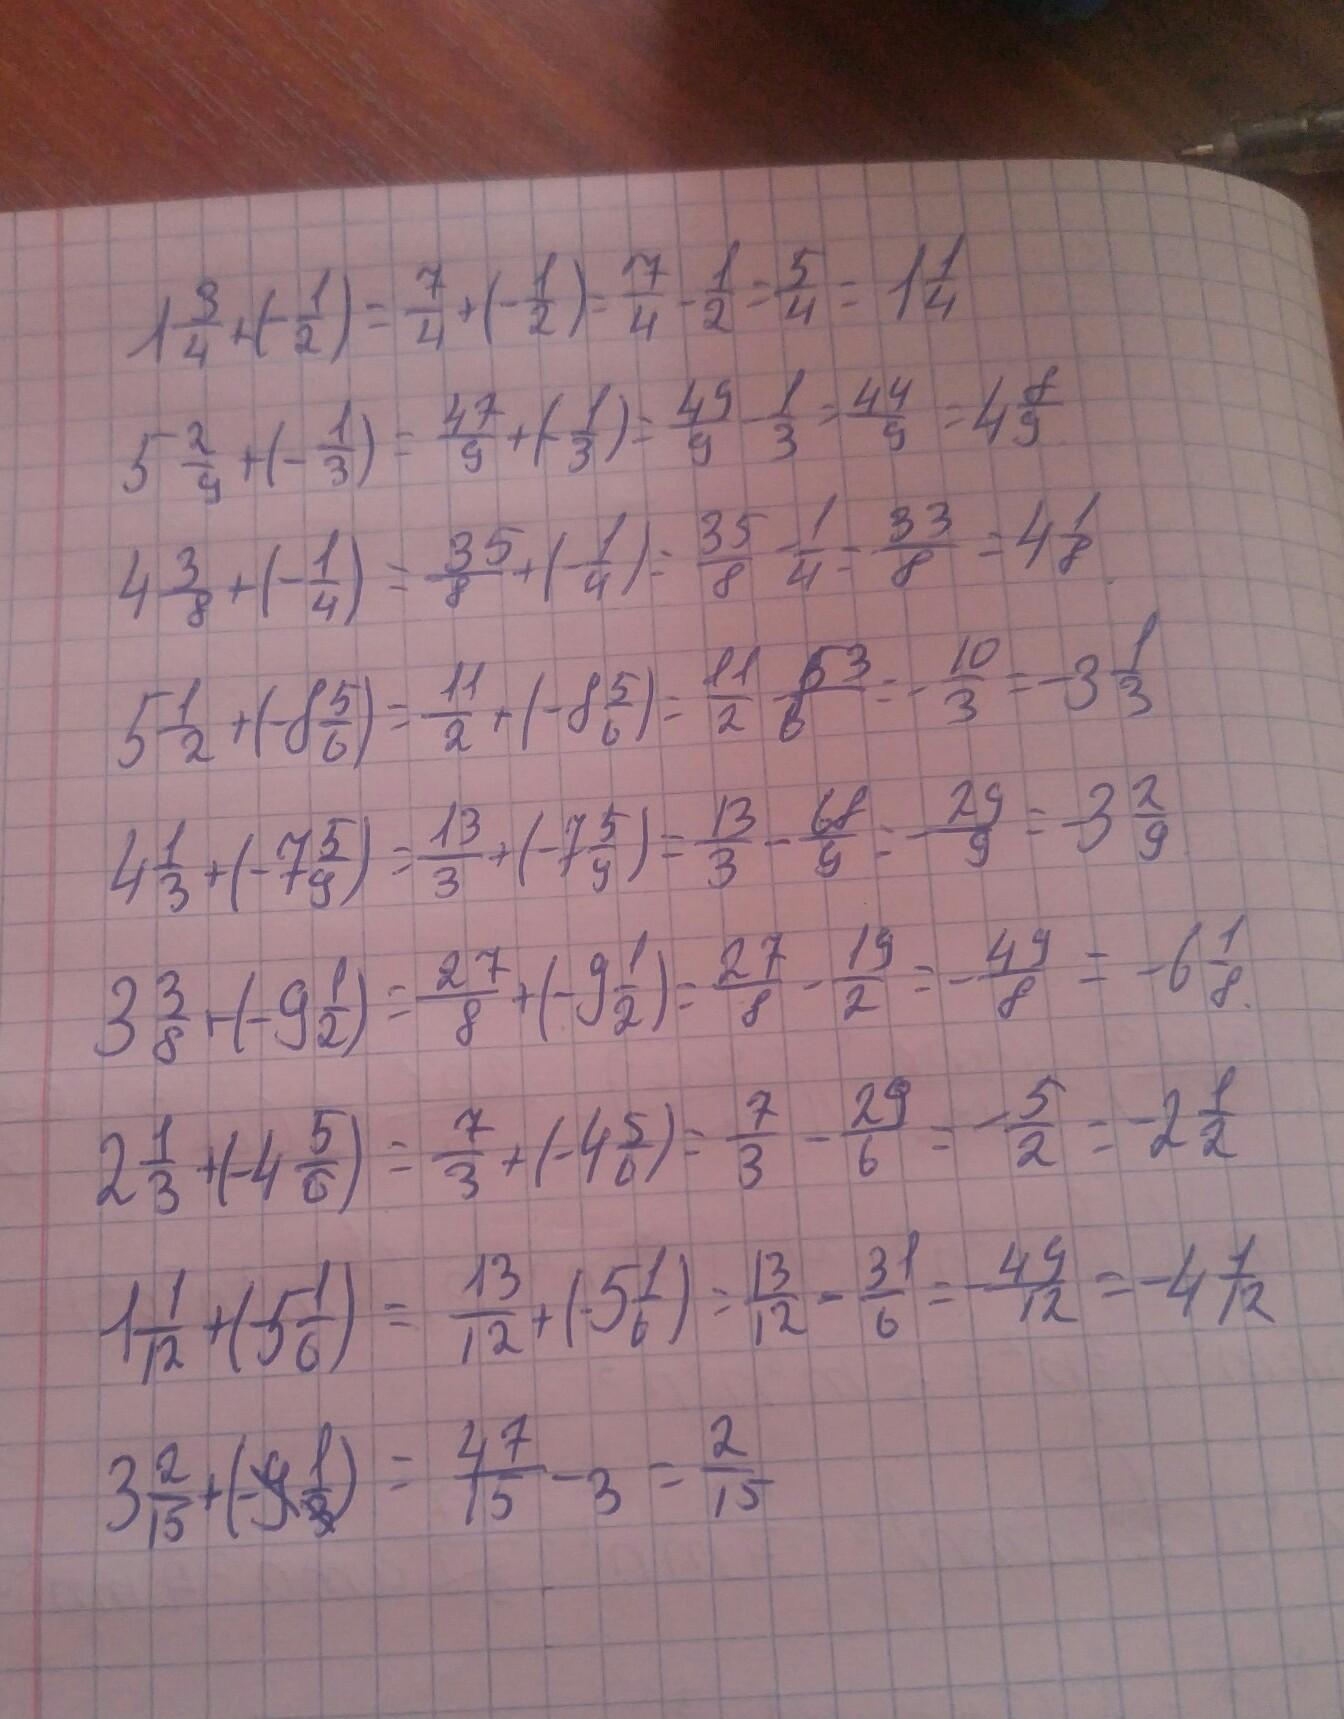 1 3/4 + (-1/2) = 7/4 + (-1/2) = 7/4 - 1/2 = 5/4 = 1 1/4
5 2/9 + (-1/3) = 47/9 + (-1/3) = 49/9 - 1/3 = 44/9 = 4 8/9
4 3/8 + (-1/4) = 35/8 + (-1/4) = 35/8 - 1/4 = 33/8 = 4 1/8
5 1/2 + (-8 5/6) = 11/2 + (-8 5/6) = 11/2 - 53/6 = -10/3 = -3 1/3
4 1/3 + (-7 5/9) = 13/3 + (-7 5/9) = 13/3 - 68/9 = -29/9 = -3 2/9
3 3/8 + (-9 1/2) = 27/8 + (-9 1/2) = 27/8 - 19/2 = -49/8 = -6 1/8
2 1/3 + (-4 5/6) = 7/3 + (-4 5/6) = 7/3 - 29/6 = -5/2 = -2 1/2
1 1/12 + (-5 1/6) = 13/12 + (-5 1/6) = 13/12 - 31/6 = -49/12 = -4 1/12
3 2/15 + ( ) = 47/15 - 3 = 2/15